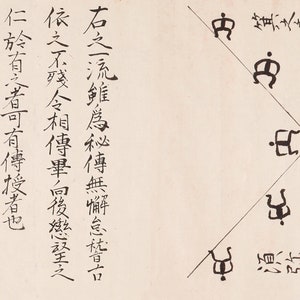 須弥
右之一流雖爲秘傳無懈怠稽古
依之不残令相傳畢向後懇望之
仁於有之者可有傳授者也